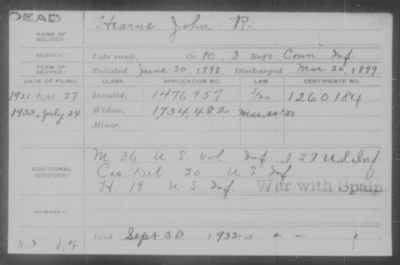 DEAD
NAME OF SOLDIER: Hearns John P.
SERVICE: Late rank, Co. K 3 Reg't Conn Inf
TERM OF SERVICE: Enlisted June 30, 1898 Discharged Mar 20, 1899
DATE OF FILING. CLASS. APPLICATION NO. LAW. CERTIFICATE NO.
27 Invalid, 1476957 1260184
1933, July 24 Widow, 1734,482
Minor,
ADDITIONAL SERVICES: M 36 U.S. Vol. Inf. I 27 U.S. Inf
Cas Det 20 U S Inf
H 19 U S Inf War with Spain
REMARKS:
Died Sept 30, 1932 at